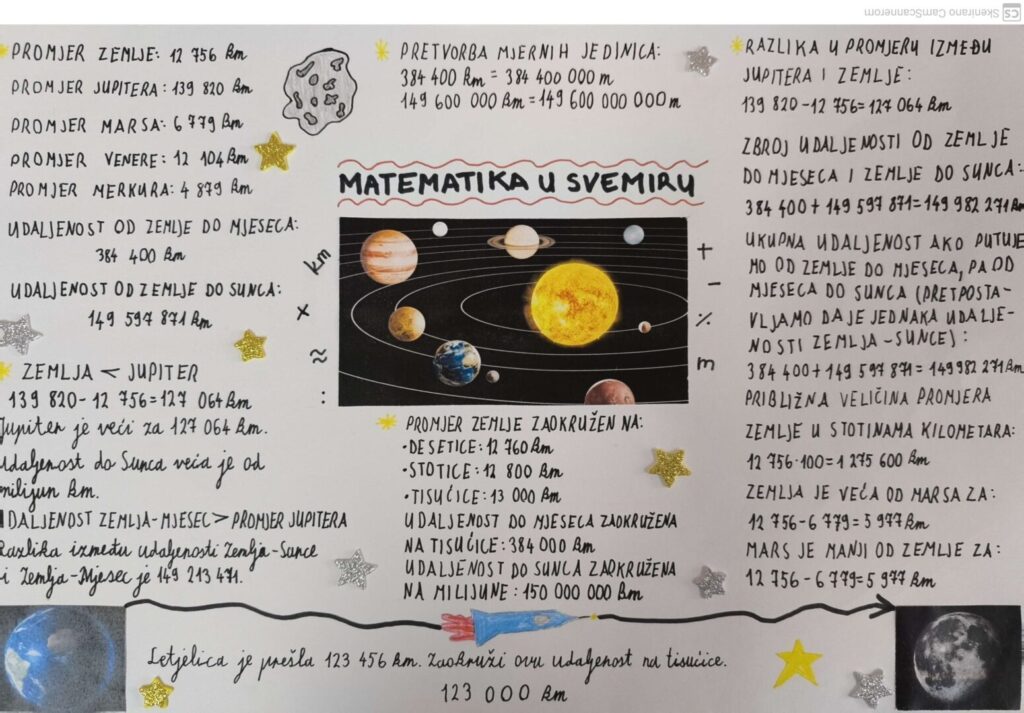 Skenirano CamScannerom
CS
PROMJER ZEMLJE: 12 756 km
PROMJER JUPITERA: 139 820 km
PROMJER MARSA: 6 779 km
PROMJER VENERE: 12 104 km
PROMJER MERKURA: 4 879 km
UDALJENOST OD ZEMLJE DO MJESECA:
384 400 km
UDALJENOST OD ZEMLJE DO SUNCA:
149 597 871 km
ZEMLJA < JUPITER
139 820-12 756=127 064 km
Jupiter je veći za 127 064 km.
Udaljenost do Sunca veća je od
milijun km.
UDALJENOST ZEMLJA-MJESEC > PROMJER JUPITERA
Razlika između udaljenosti Zemlja-Sunce
i Zemlja-Mjesec je 149 213 471.
PRETVORBA MJERNIH JEDINICA:
384 400 km = 384 400 000 m
149 600 000 km = 149 600 000 000 m
MATEMATIKA U SVEMIRU
km
x
≈
:
+
-
%
m
PROMJER ZEMLJE ZAOKRUŽEN NA:
•DESETICE: 12 760 km
•STOTICE: 12 800 km
•TISUĆICE: 13 000 km
UDALJENOST DO MJESECA ZAOKRUŽENA
NA TISUĆICE: 384 000 km
UDALJENOST DO SUNCA ZAOKRUŽENA
NA MILIJUNE: 150 000 000 km
RAZLIKA U PROMJERU IZMEĐU
JUPITERA I ZEMLJE:
139 820-12 756=127 064 km
ZBROJ UDALJENOSTI OD ZEMLJE
DO MJESECA I ZEMLJE DO SUNCA:
384 400+149 597 871=149 982 271 km
UKUPNA UDALJENOST AKO PUTUJE
MO OD ZEMLJE DO MJESECA, PA OD
MJESECA DO SUNCA (PRETPOSTA-
VLJAMO DA JE JEDNAKA UDALJE-
NOSTI ZEMLJA-SUNCE):
384 400+149 597 871=149 982 271 km
PRIBLIŽNA VELIČINA PROMJERA
ZEMLJE U STOTINAMA KILOMETARA:
12 756·100=1 275 600 km
ZEMLJA JE VEĆA OD MARSA ZA:
12 756-6 779=5 977 km
MARS JE MANJI OD ZEMLJE ZA:
12 756-6 779=5 977 km
Letjelica je prešla 123 456 km. Zaokruži ovu udaljenost na tisućice.
123 000 km